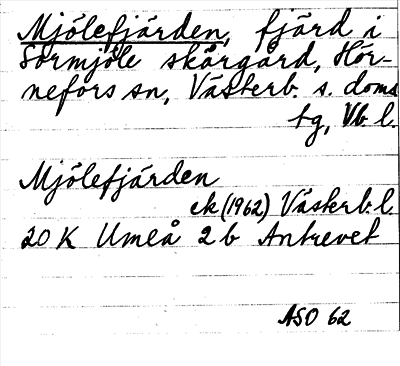 Mjölefjärden, fjärd i
Sörmjöle skärgård, Hör-
nefors sn, Västerb. s. doms
tg, Vb. l.
Mjölefjärden
ek (1962) Västerb. l.
20 K Umeå 2b Antrevet
ASO 62